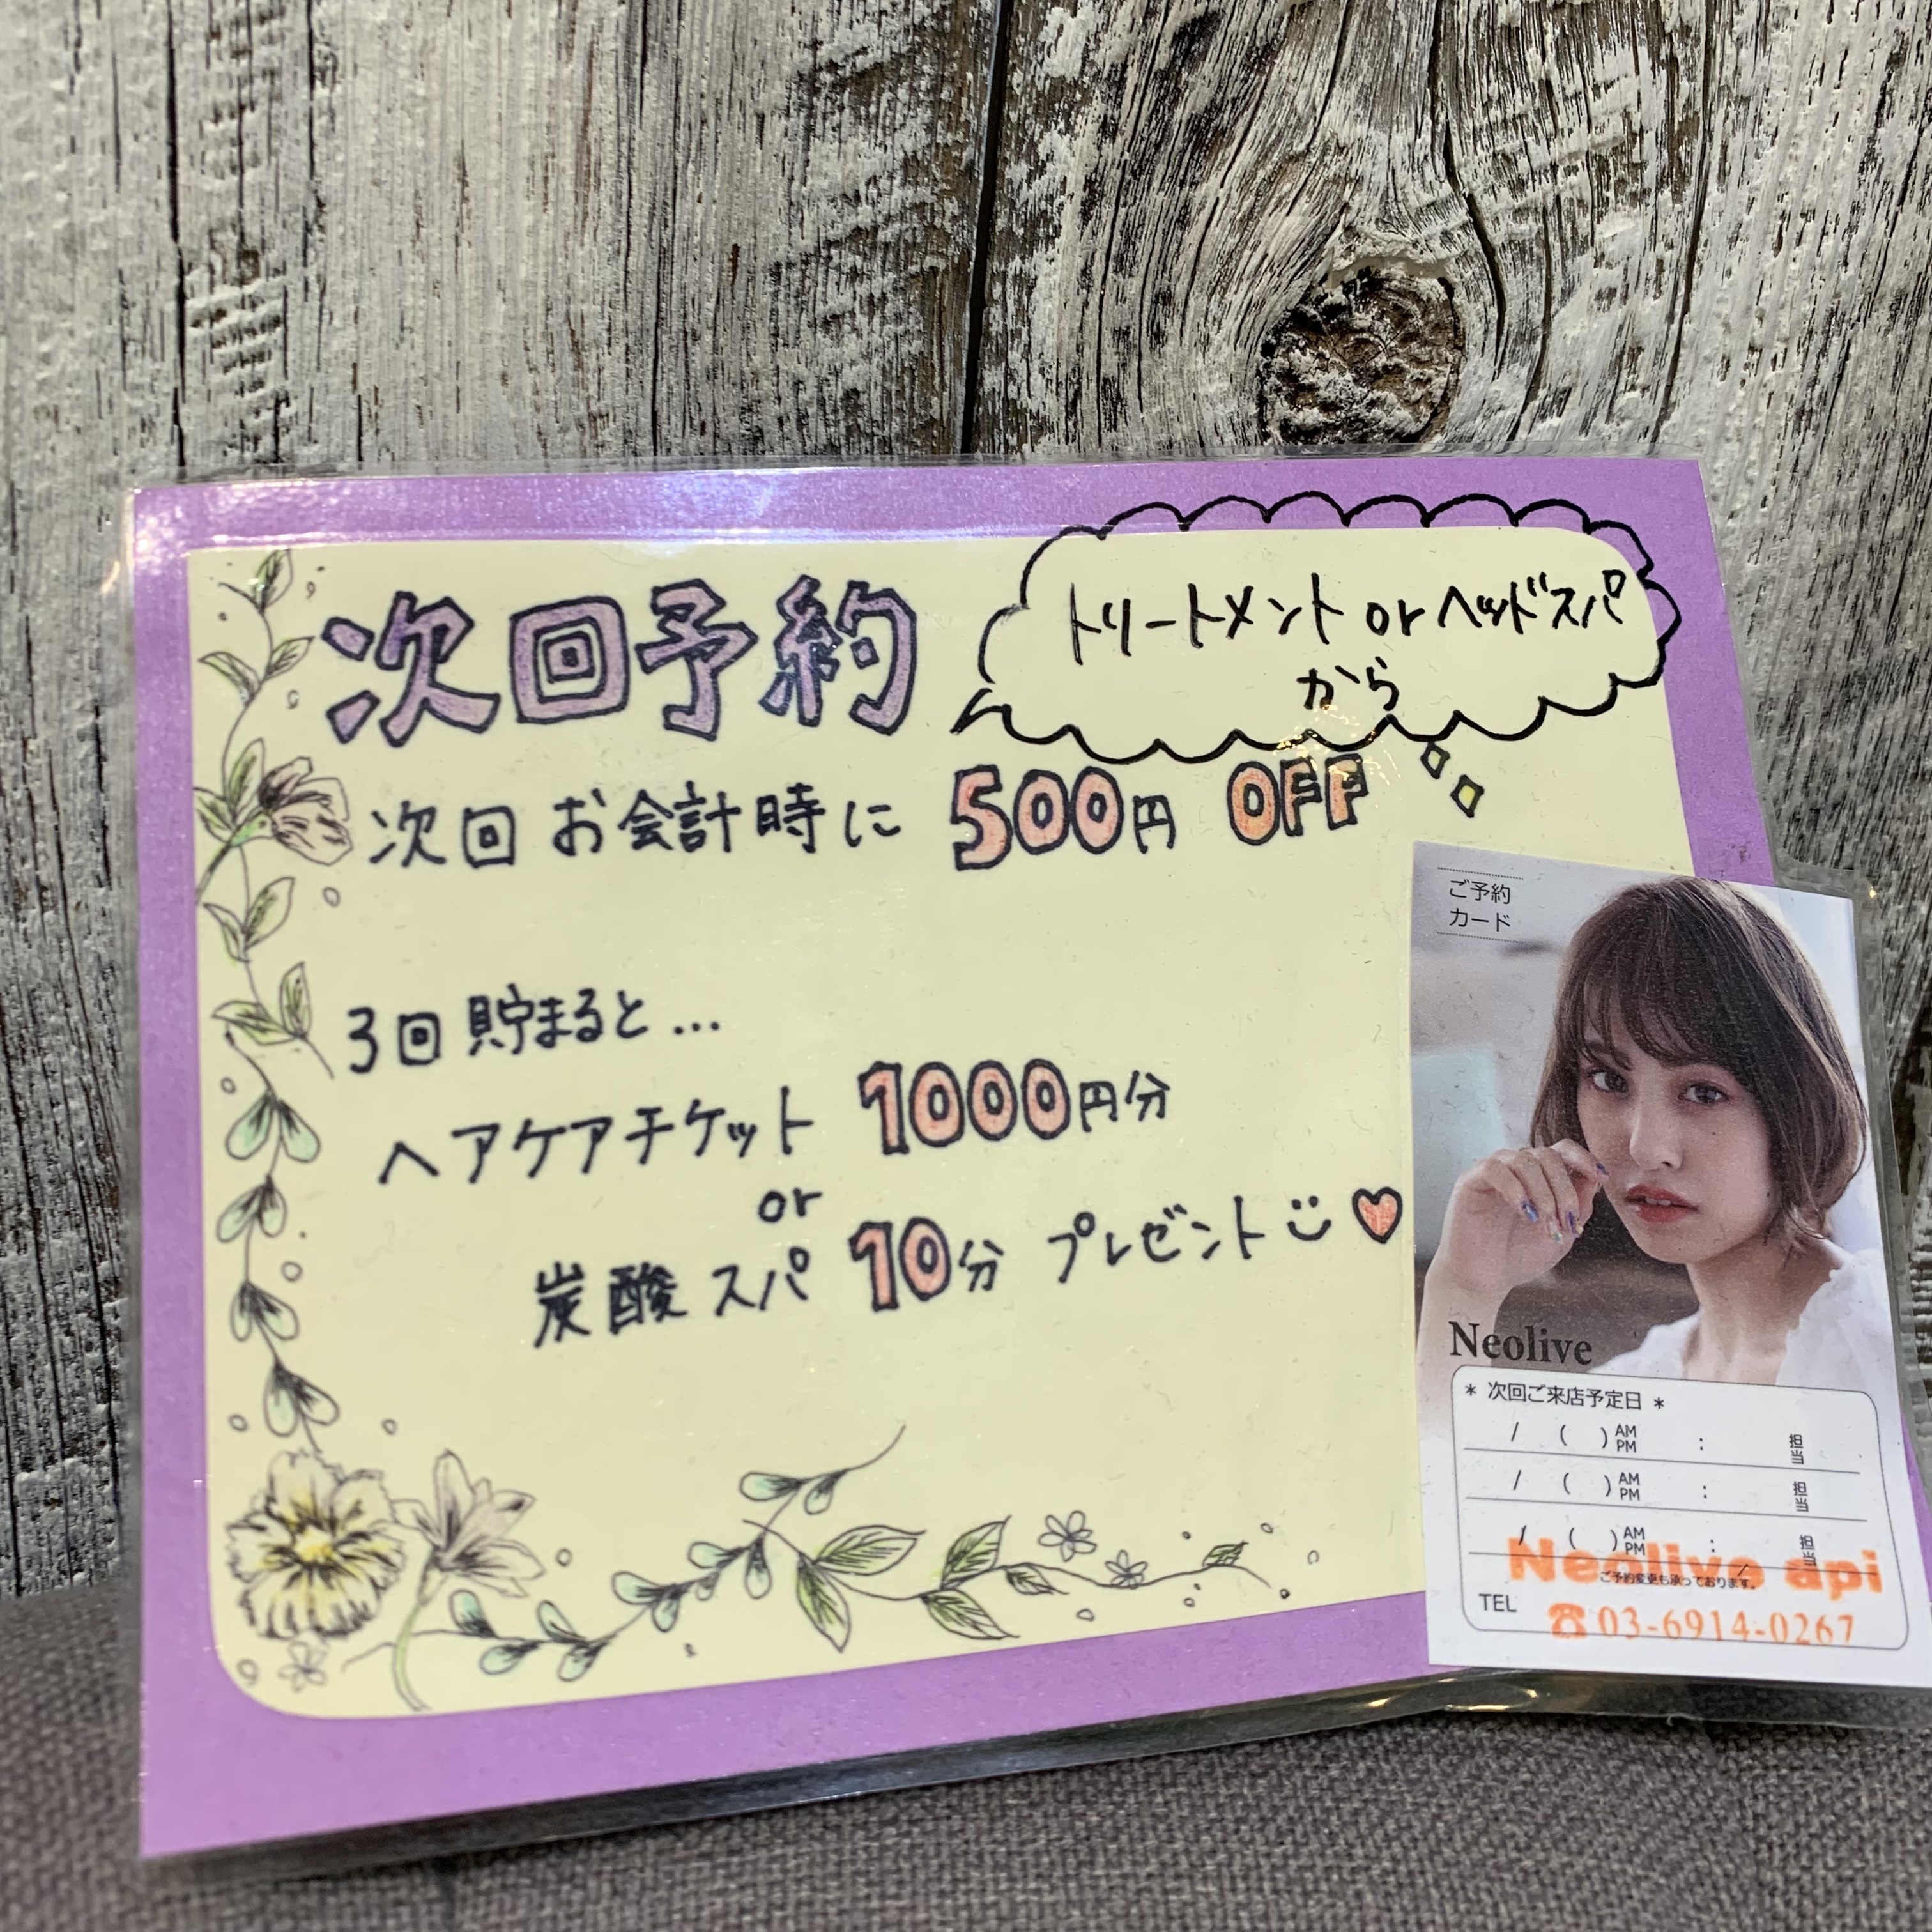 次回予約
トリートメント or ヘッドスパ
から
次回 お会計時に 500円 OFF
3回 貯まると...
ヘアケアチケット 1000円分
or
炭酸スパ 10分 プレゼント
ご予約
カード
Neolive
* 次回ご来店予定日 *
/ ( ) AM PM : 担当
/ ( ) AM PM : 担当
/ ( ) AM PM : 担当
Neolive api
ご予約変更も承っております。
TEL ☎03-6914-0267